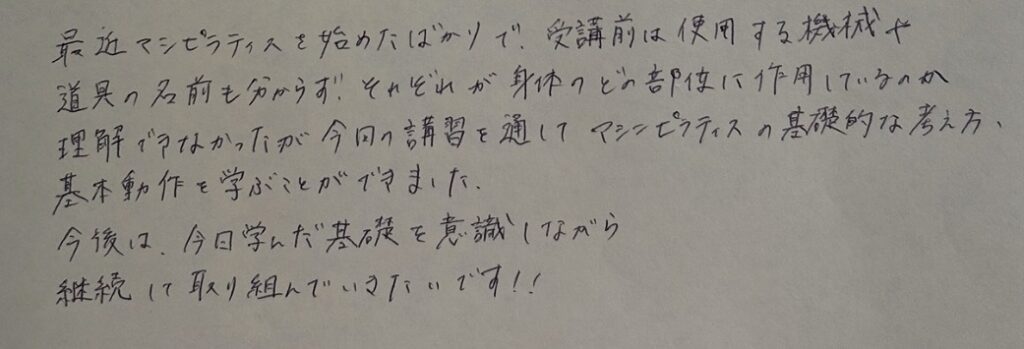 最近マシピラティスを始めたばかりで、受講前は使用する機械や
道具の名前も分からず、それぞれが身体のどの部位に作用しているのか
理解できなかったが今回の講習を通してマシンピラティスの基礎的な考え方、
基本動作を学ぶことができました。
今後は、今日学んだ基礎を意識しながら
継続して取り組んでいきたいです!!